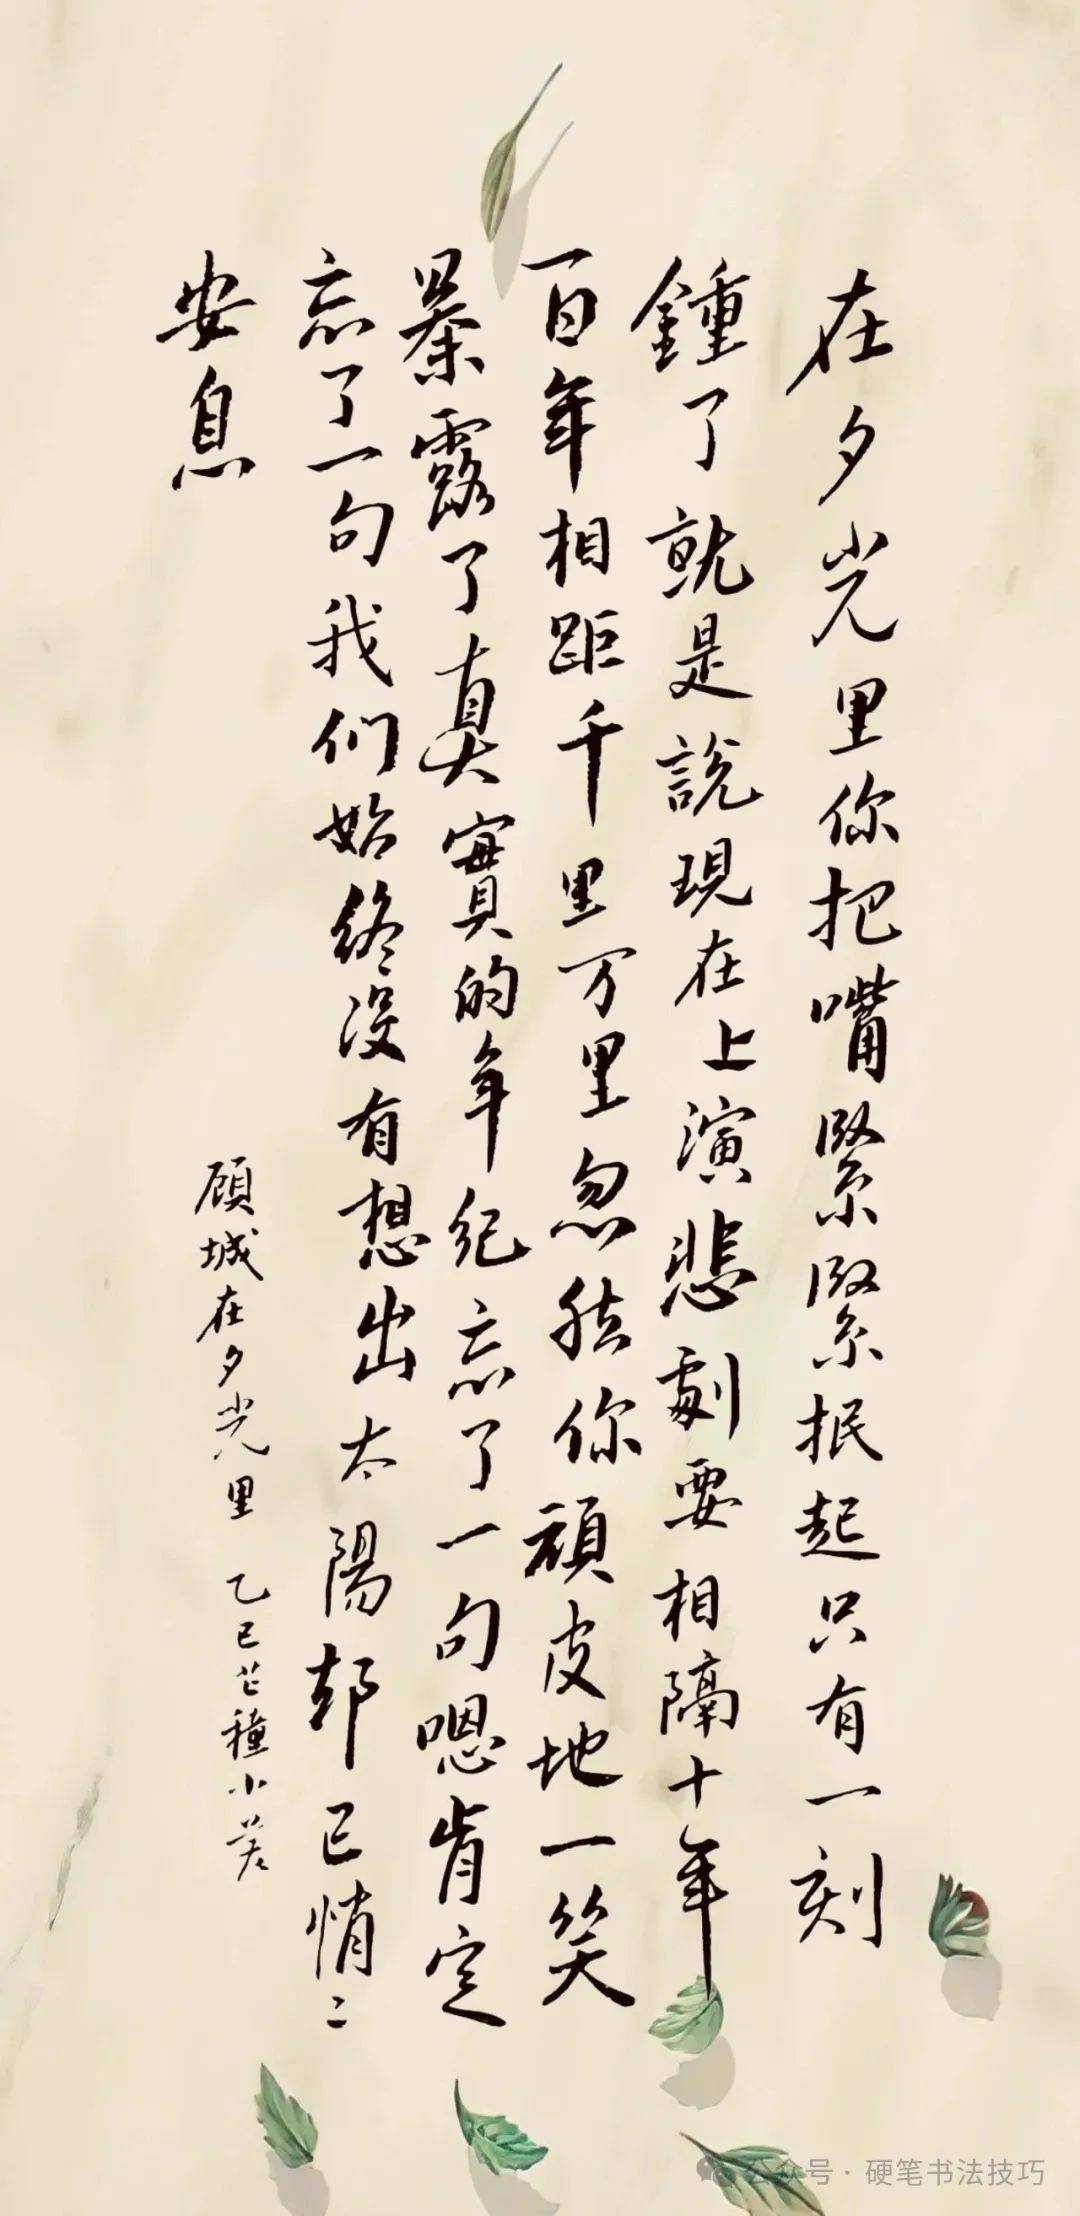 在夕光里你把嘴緊緊抿起只有一刻
鍾了就是說現在上演悲劇要相隔十年
一百年相距千里万里忽然你頑皮地一笑
暴露了真實的年纪忘了一句嗯肯定
忘了一句我们始终没有想出太陽却已悄〻
安息
顾城在夕光里 乙巳芒種小若
公众号·硬笔书法技巧